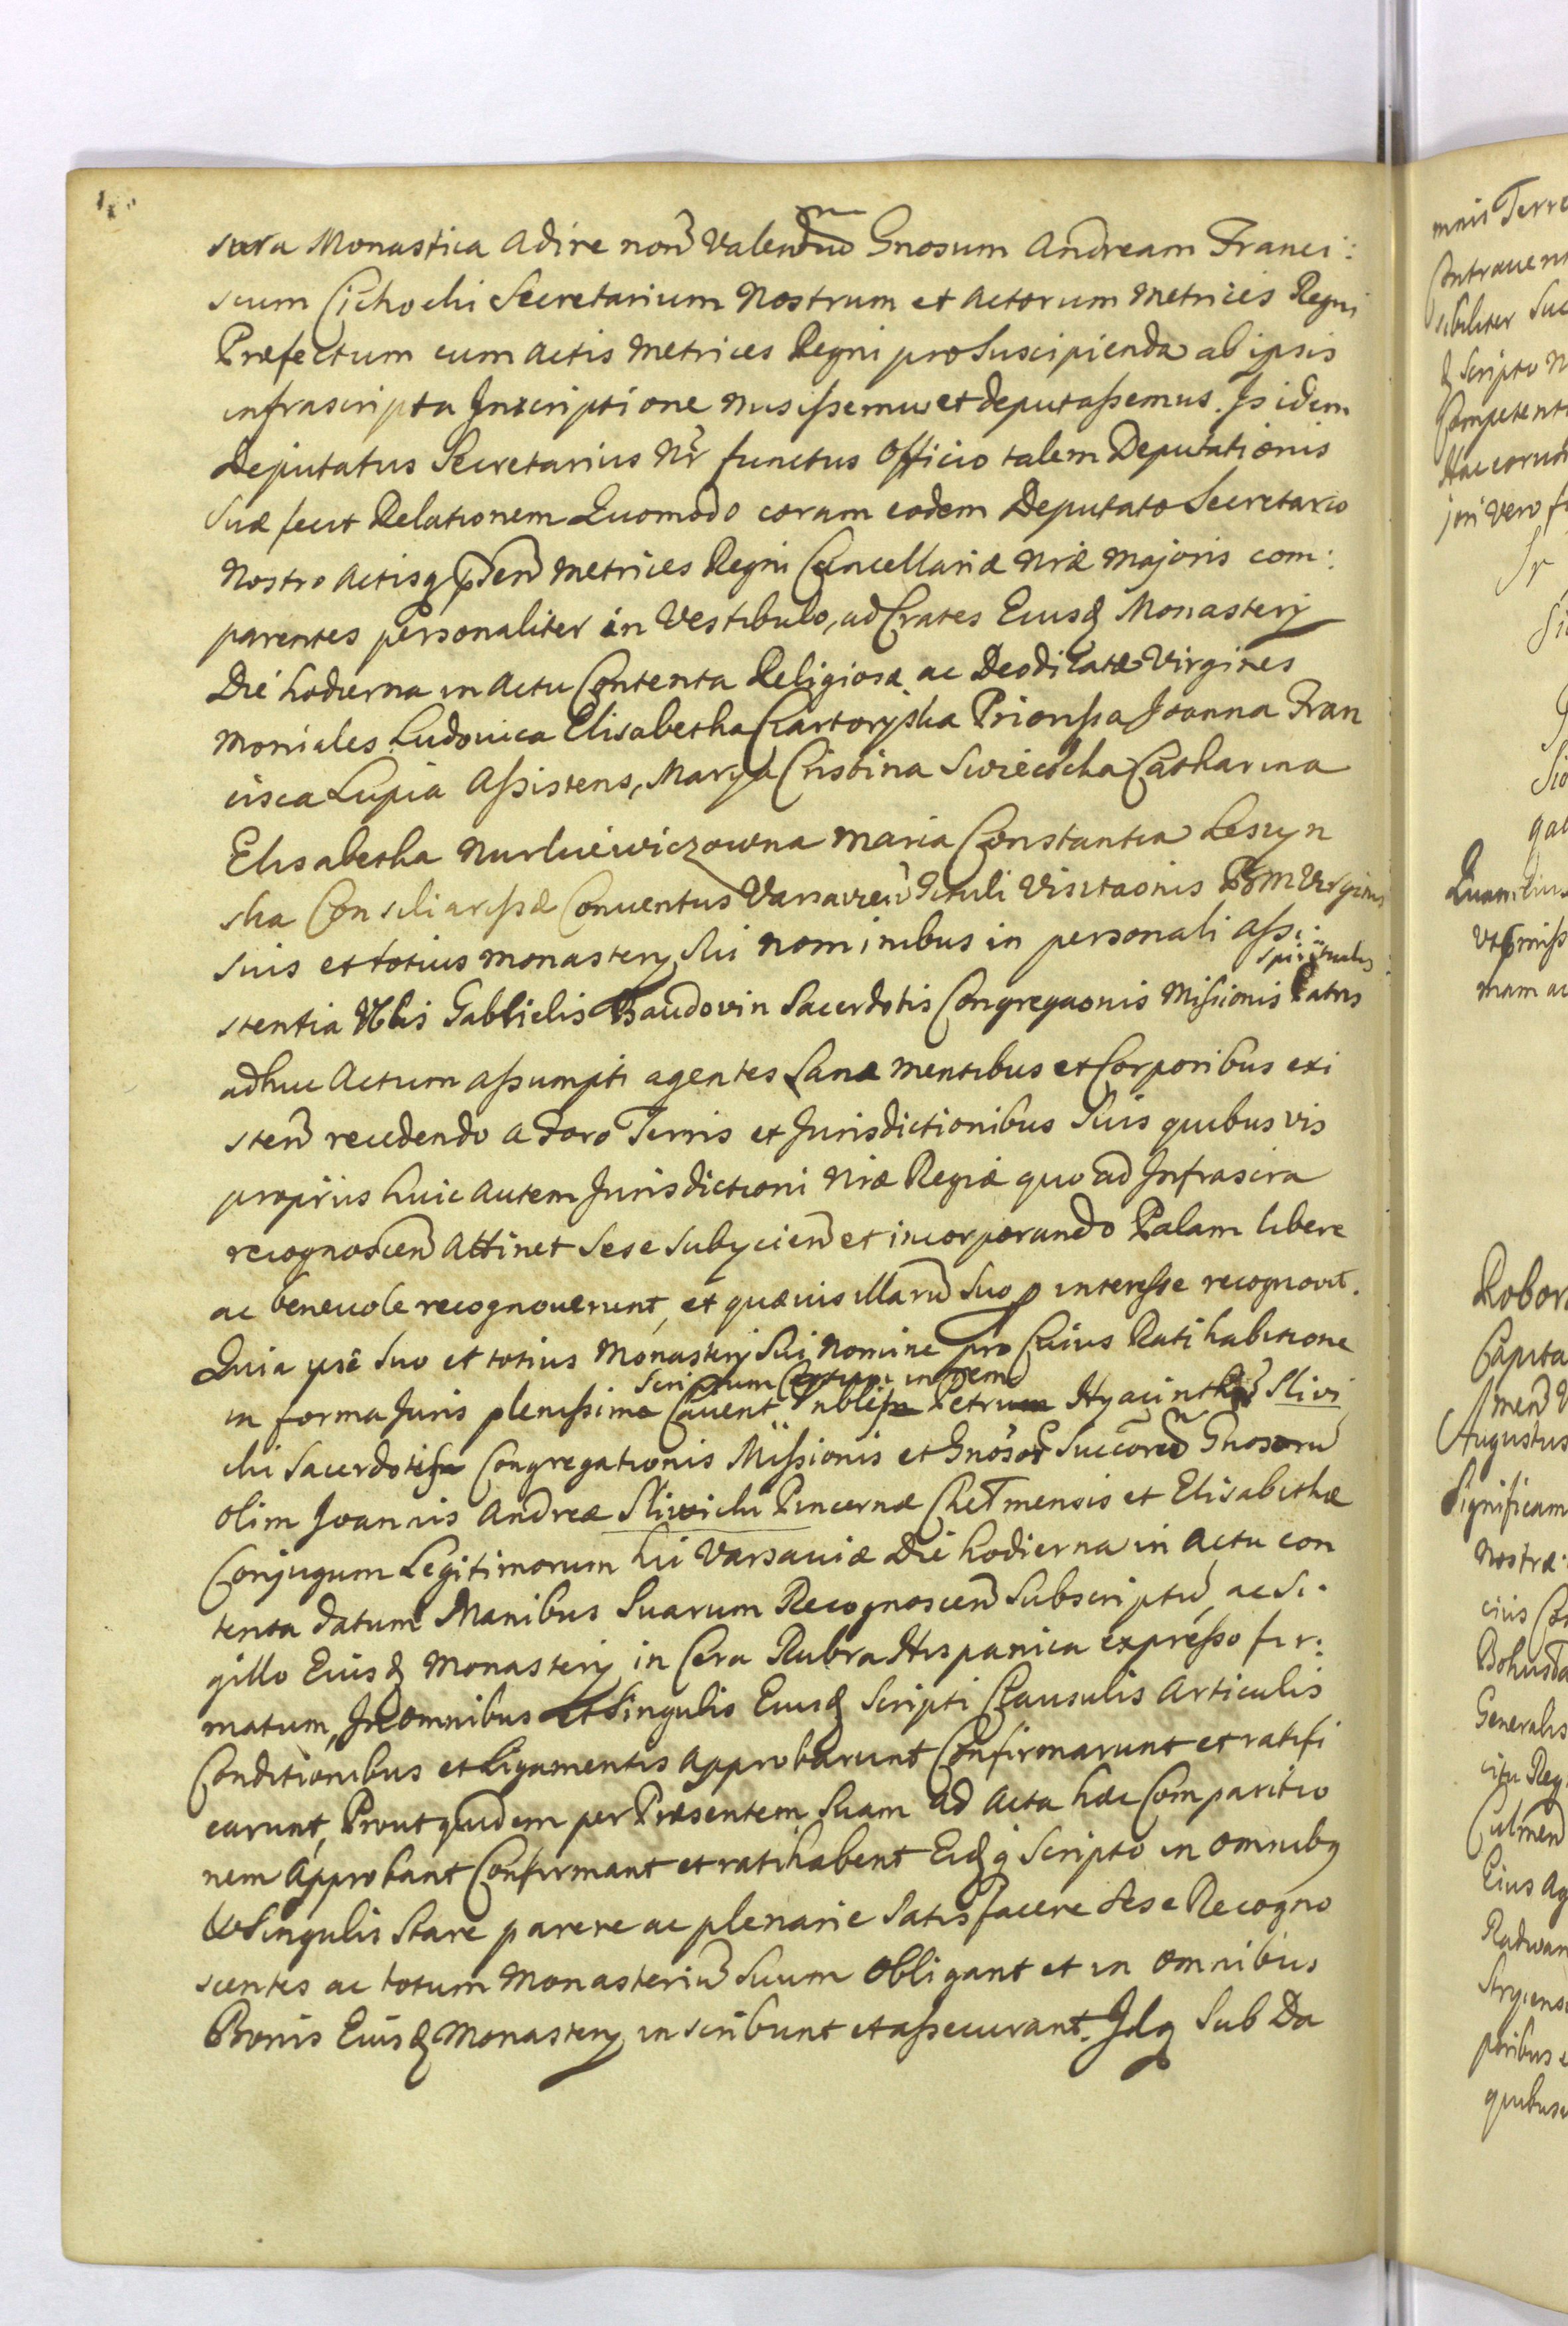 sura Monastica Adire non̄ Valen̄ Gnosum Andream Franci:
scum Cichocki Secretarium Nostrum et Actorum Metrices Regni
Præfectum cum Actis Metrices Regni pro Suscipienda ab ipsis
infrascripta Inscriptione misissemus et deputassemus. Is idem
Deputatus Secretarius Nr̄ functus Officio talem Deputationis
Suæ fecit Relationem Quomodo coram eodem Deputato Secretario
Nostro Actisq p̄sen̄ Metrices Regni Cancellariæ Nrǣ Majoris com:
parentes personaliter in Vestibulo, ad Crates Eiusd Monasterij
Die hodierna in Actu Contenta Religiosæ ac Deo dicatæ Virgines
Moniales Ludovica Elisabetha Czartoryska Priorissa Joanna Fran
cisca Lupia Assistens, Marya Cristina Swiecicka Catharina
Elisabetha Nurkiewiczowna Maria Constantia Leszyn
ska Consiliarissæ Conventus Varsavien̄ Tituli Visitaonis BM Virginis
suis et totius Monasterij sui nominibus in personali Assi:
stentia Nblis Gabrielis Baudovin Sacerdotis Congregaonis Missionis Patris
Spiritualis
adhuc Actum assumpti agentes Sanæ mentibus et Corporibus exi
sten̄ recedendo a Foro Terris et Jurisdictionibus Suis quibusvis
proprijs huic autem Jurisdictioni Nrǣ Regiæ quo ad Infrascra
recognoscen̄ Attinet Sese Subyicien̄ et incorporando Palam libere
ac benevole recognoverunt, et quævis illarū Suo p interesse recognovit.
Quia ipsē Suo et totius Monasterij Sui Nomine pro Cuius Ratihabitione
in forma Juris plenissima Cavent Scriptum nblis Petrum Hyacinthū Sliwi
cki Sacerdotis Congregationis Missionis et Gnosor̄ Succorem̄ Gnosorū
olim Joannis Andreæ Sliwicki Pincernæ Chełmensis et Elisabethæ
Conjugum Legitimorum hic Varsaviæ Die hodierna in Actu con
tenta datum Manibus Suarum Recognoscen̄ Subscriptū ac Si.
gillo Eiusd Monasterij in Cera Rubra Hispanica expresso fir:
matum, In omnibus et Singulis Eiusd Scripti Clausulis Articulis
Conditionibus et Ligamentis Approbarunt Confirmarunt et ratifi
carunt, Prout quidem per Præsentem Suam ad Acta hæc Comparitio
nem Approbant Confirmant et ratihabent Eidq Scripto in omnibq
et Singulis Stare parere ac plenarie Satisfacere sese Recogno
scentes ac totum Monasteriū Suum Obligant et in omnibus
Bonis Eiusd Monasterij inscribunt et assecurant. Idq Sub Da
mnis Terre
Contraveni
sibiliter Suc
d Scripto N
Competenti
Hæc eorun
jori Vero f
Sio
gat
Quam eius
mam ac
Robor
Capita
Augustus
Significam
Nostræ
cuius Co
Generalis
citu Reg
Culmen̄
Eius Ag
Radwan
Stryiens
poribus e
quibusv